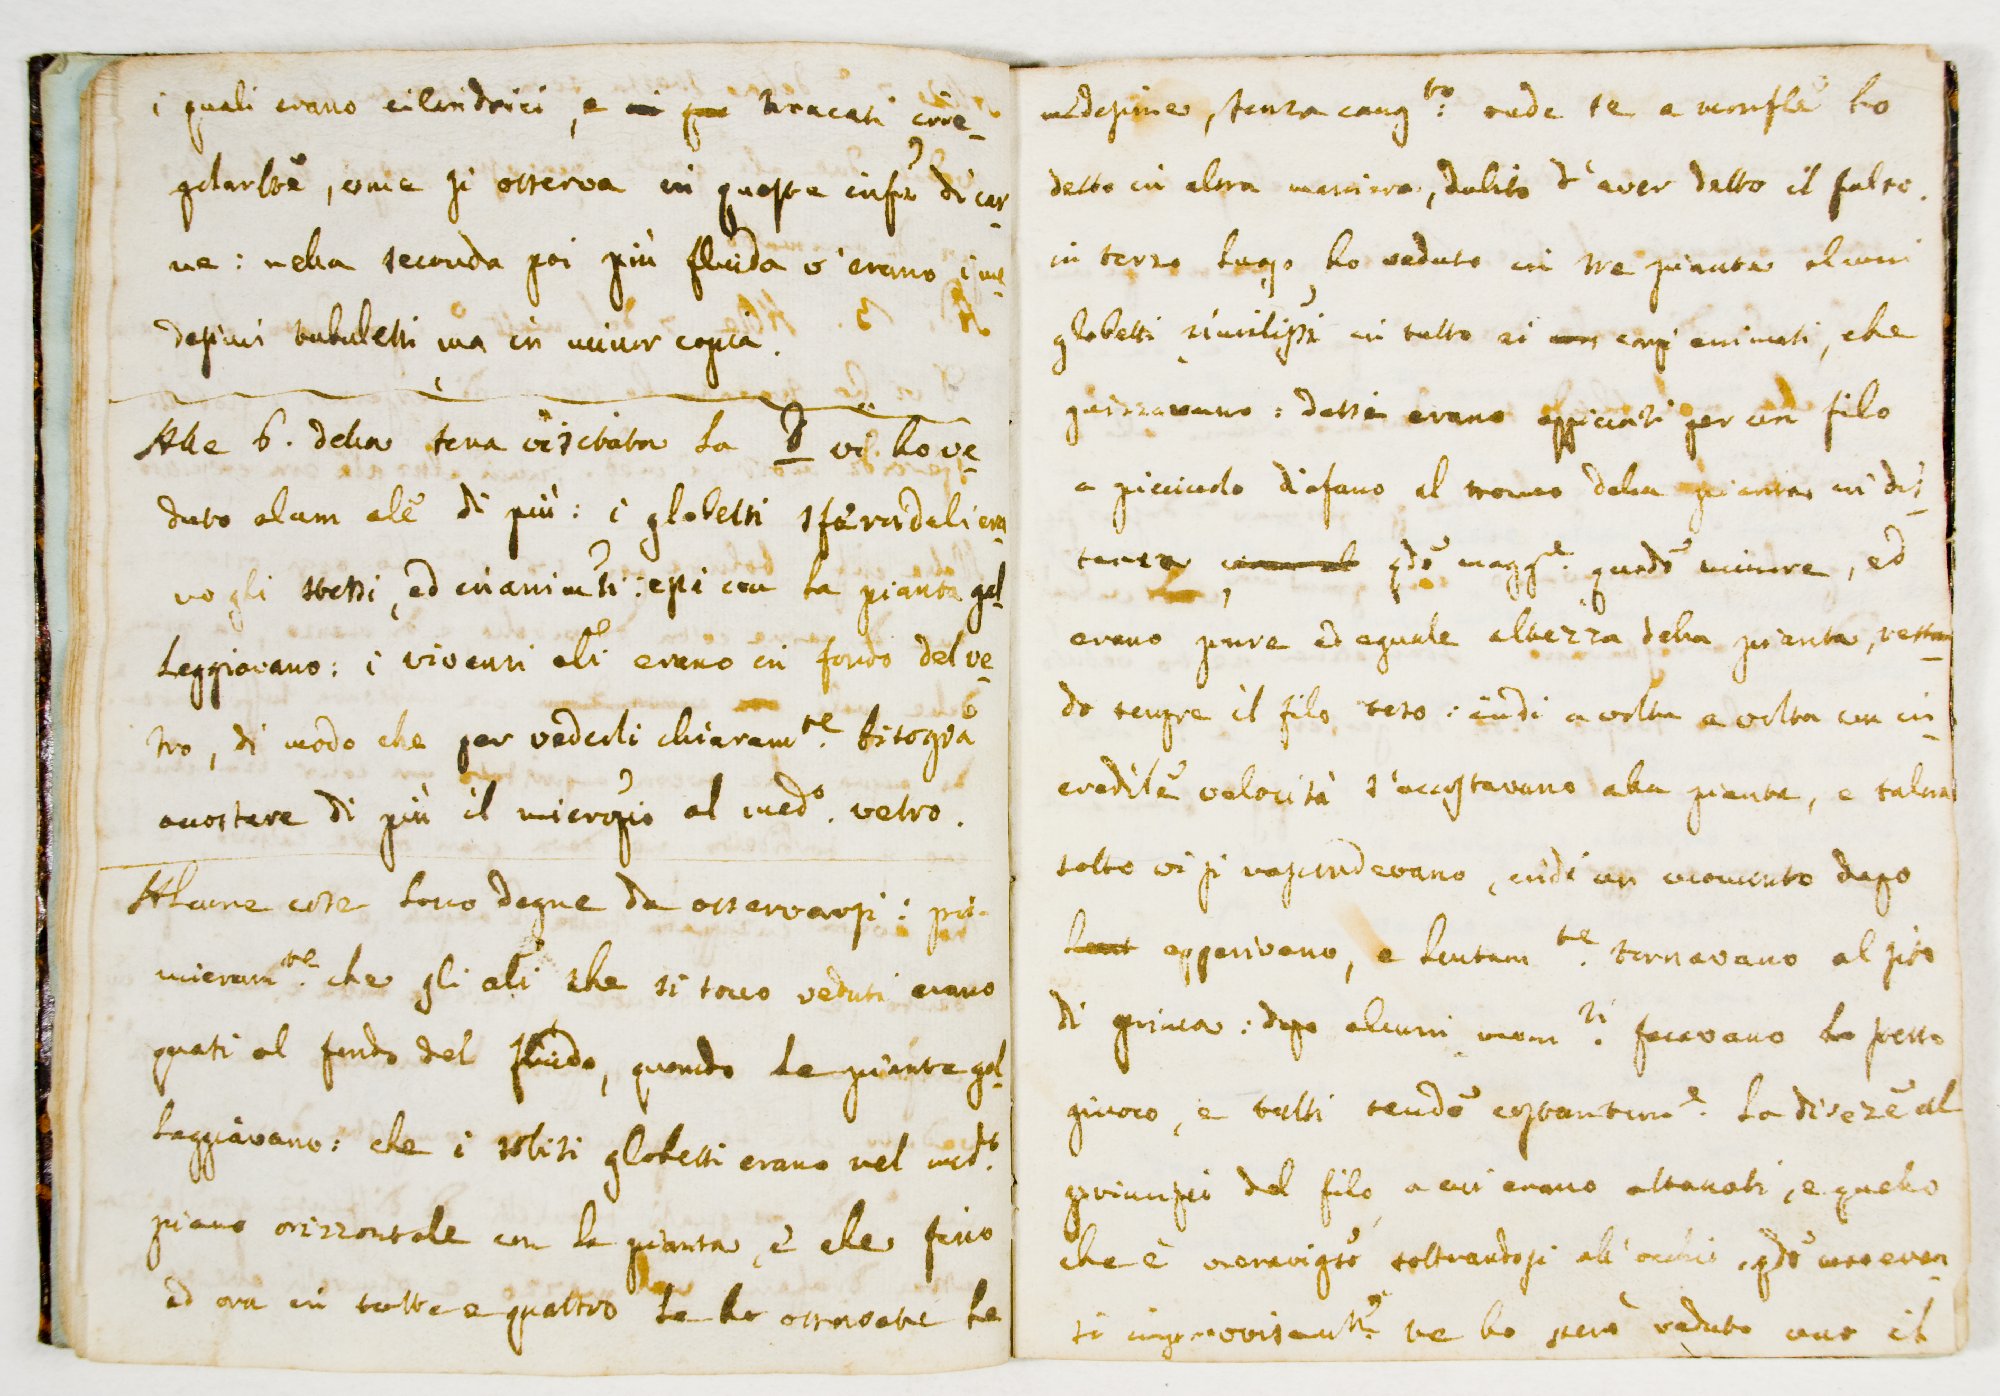 i quali erano cilindrici, e in per tracati irre-
golarltẽ, come si osserva in questa infũ di car-
ne: nella seconda poi più fluida v'erano i me-
desimi tubuletti ma in minor copia.
Alle 6. della sera visitata la I vi ho ve-
duto alcun alẽ di più: i globetti sferoidali era-
no gli stessi, ed inanimati: essi con la pianta gal-
leggiavano: i viventi alĩ erano in fondo del ve-
tro, di modo che per vederli chiaram.te bisogna
accostare di più il micropio al med.o vetro.
Alcune cose sono degne da osservarsi: pri-
mieram.te che gli alĩ che si sono veduti erano
quasi al fondo del fluido, quando le piante gal-
leggiavano: che i soliti globetti erano nel med.o
piano orizzontale con la pianta, e che fino
ad ora in tutte e quattro le ho osservate le
medesime, senza cang.to: onde se a versflẽ ho
detto in altra maniera, dubito d'aver detto il falso.
in terzo luogo ho veduto in tre piante alcuni
globetti similissi in tutto ai corpi animati, che
guizzavano: detti erano appiccati per un filo
a picciuolo diafano al tronco della pianta in dis-
tanza qdõ magg.e quandõ minore, ed
erano pure ad eguale altezza della pianta, restan-
do sempre il filo teso: indi a volta a volta con in-
credilẽ velocità s'accostavano alla pianta, e talvol
sotto vi si nascondevano, indi un momento dopo
lent apparivano, e lentam.te tornavano al sito
di prima: dopo alcuni mom.ti facevano lo stesso
giuoco, e tutti tendõ costantem.e la direzẽ al
principi del filo a cui erano attacati, e quello
che è meravigsõ soltrandosi all'occhio, qdõ uno even-
ti improvisam.te ne ho però veduto uno il